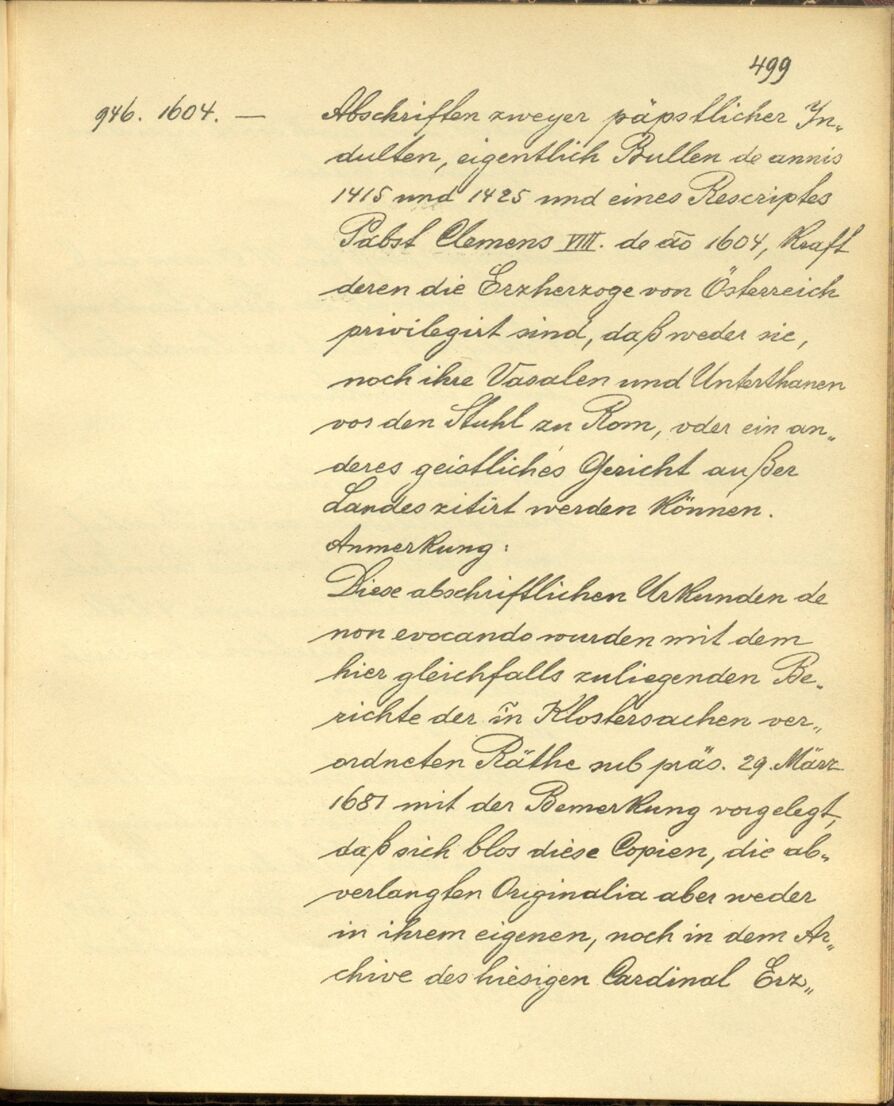 499
946. 1604. — Abschriften zweyer päpstlicher In„
dulten, eigentlich Bullen de annis
1415 und 1425 und eines Rescriptes
Pabst Clemens VIII. de ao 1604, Kraft
deren die Erzherzoge von Österreich
privilegirt sind, daß weder sie,
noch ihre Vasalen und Unterthanen
vor den Stuhl zu Rom, oder ein an„
deres geistliches Gericht außer
Landes zitirt werden können.
Anmerkung:
Diese abschriftlichen Urkunden de
non evocando wurden mit dem
hier gleichfalls zuliegenden Be„
richte der in Klostersachen ver„
ordneten Räthe sub präs. 29. März
1681 mit der Bemerkung vorgelegt,
daß sich blos diese Copien, die ab„
verlangten Originalia aber weder
in ihrem eigenen, noch in dem Ar„
chive des hiesigen Cardinal Erz„